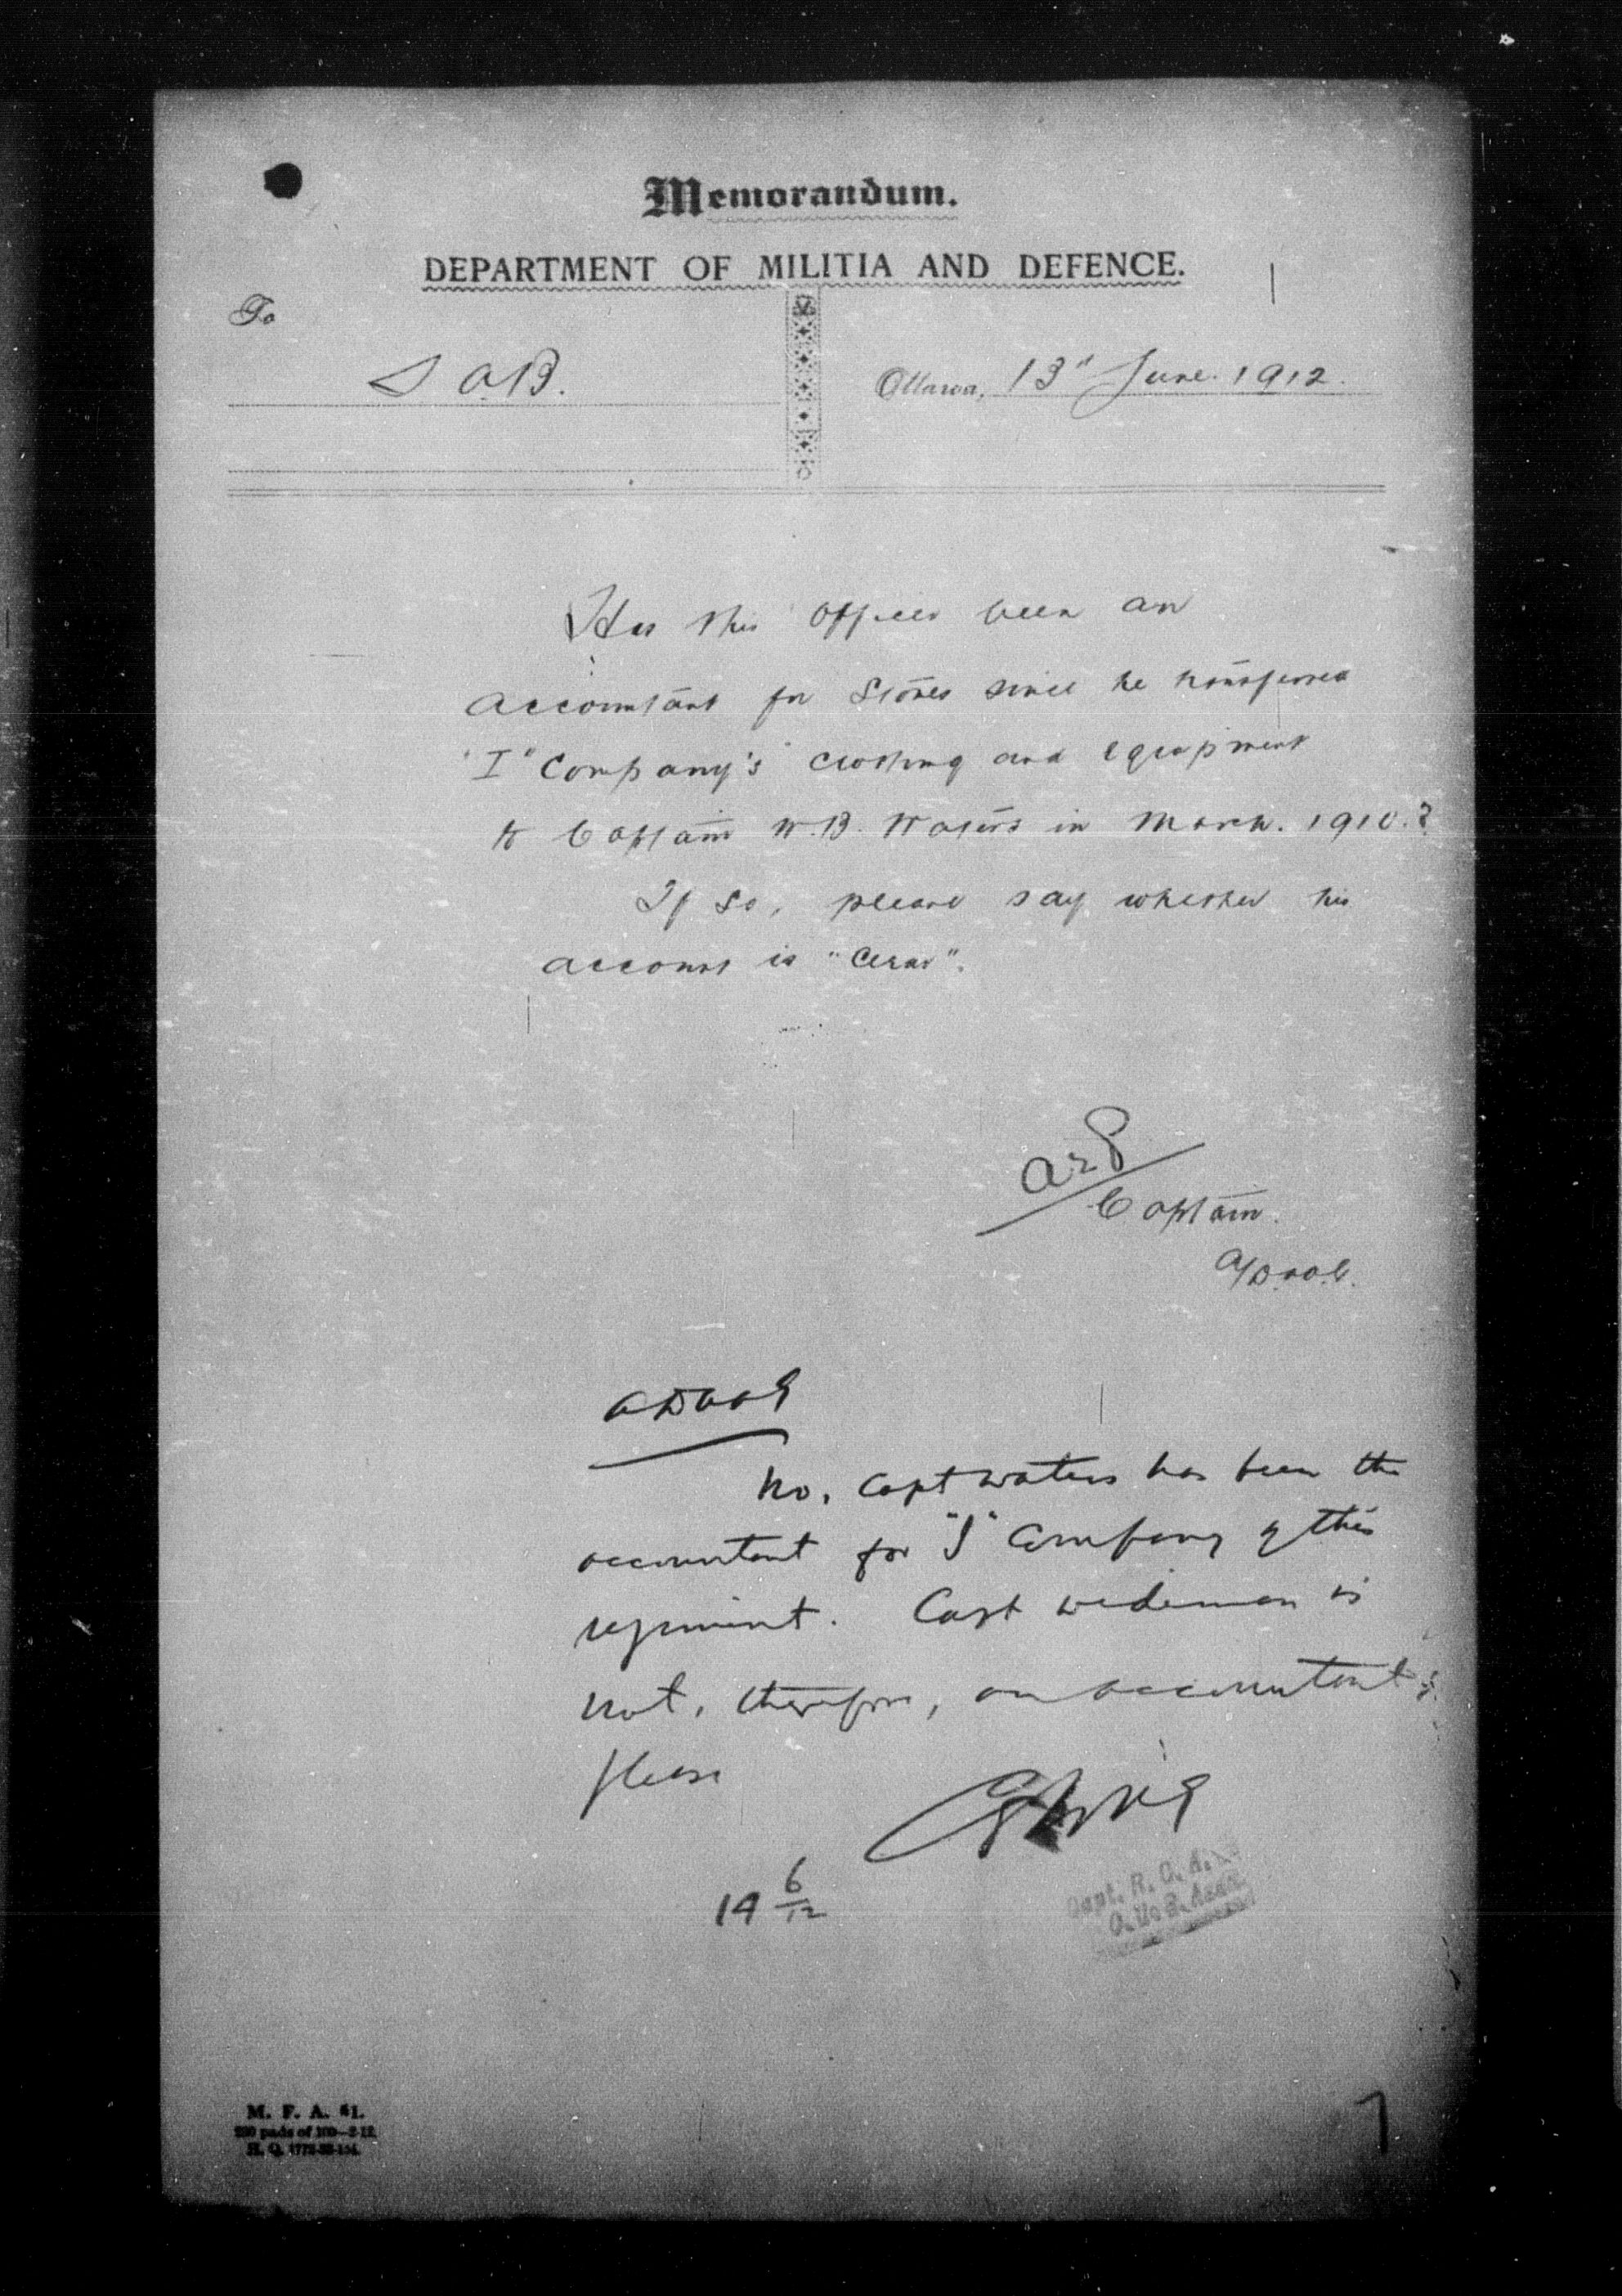 Memorandum.
DEPARTMENT OF MILITIA AND DEFENCE.
To
S.O.B.
Ottawa, 13" June. 1912.
Has this Officer been an
accountant for Stores since he transferred
"I" Company's clothing and equipment
to Captain W.B. Waters in March. 1910.?
If so, please say whether his
account is "clear".
Captain.
A/D.O.C.
No, Capt Waters has been the
accountant for "I" Company of this
regiment. Capt Wideman is
not, therefore, an accountant
please
14 6/12
Capt. R. O. A.
M. F. A. 41.
200 pads of 100—2-12.
H. Q. 1772-39-154.
7